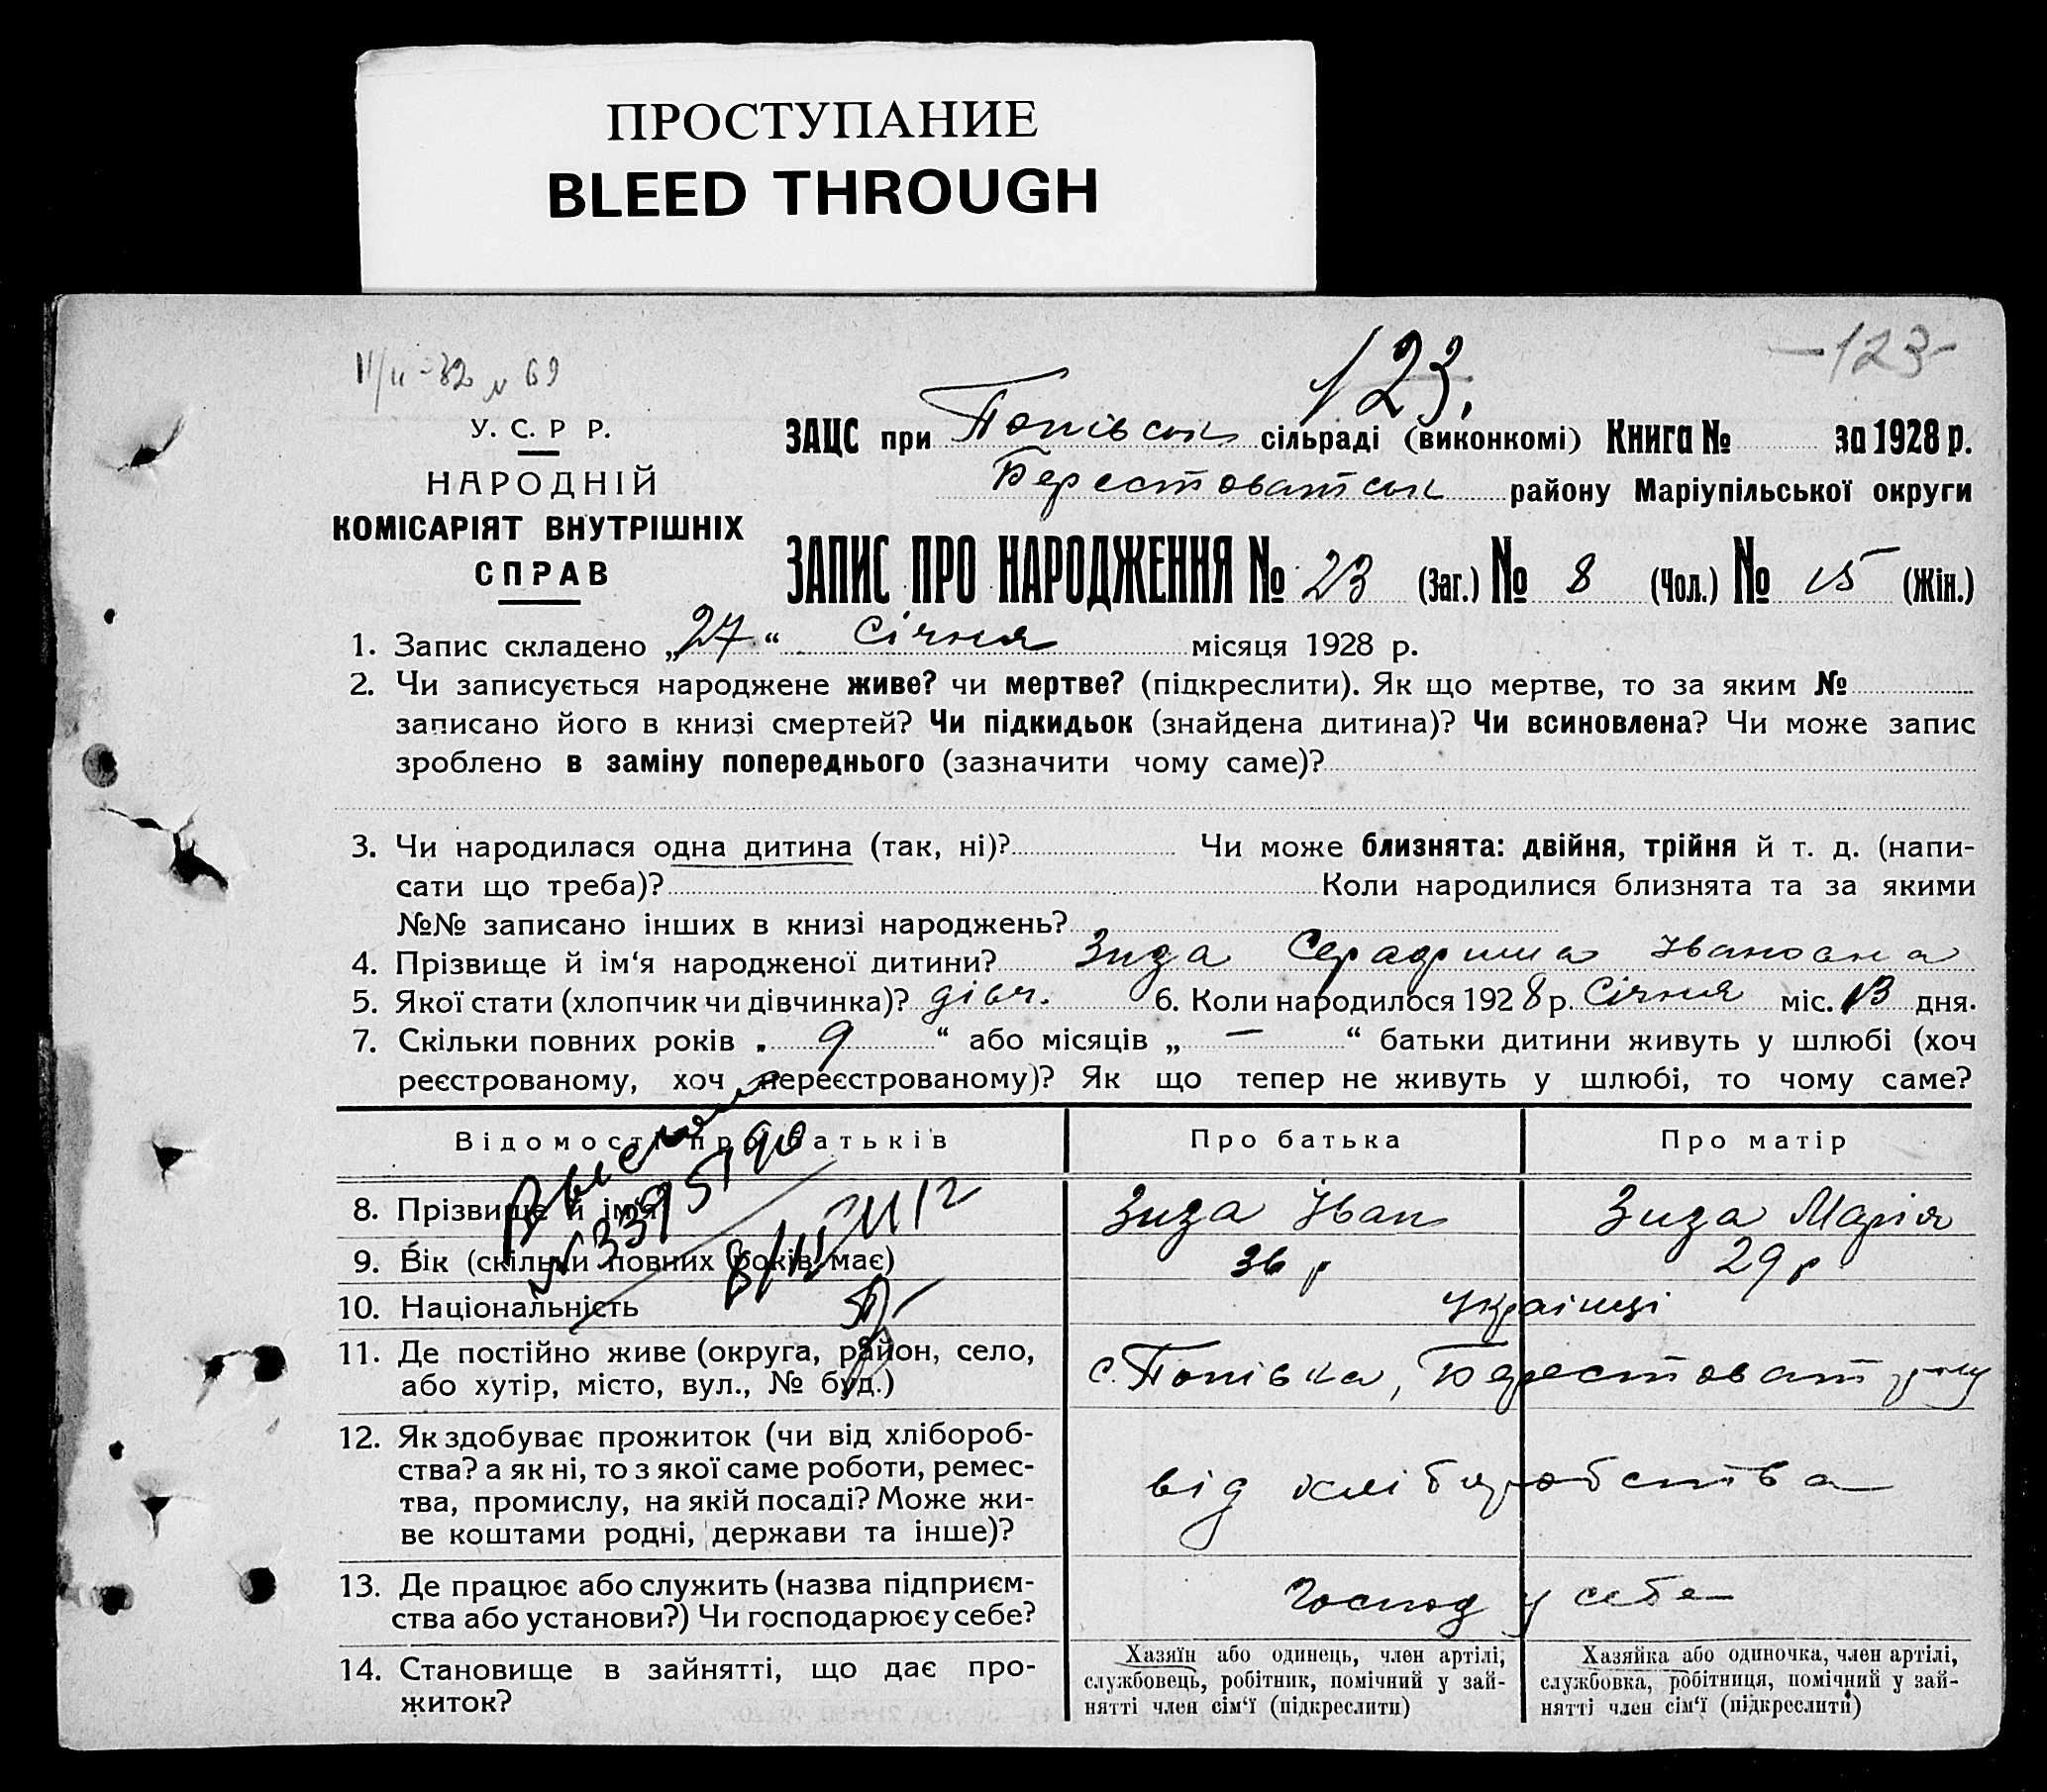 ПРОСТУПАНИЕ
BLEED THROUGH
II/II-32 N 69
123.
-123-
У. С. Р Р.
НАРОДНІЙ
КОМІСАРІЯТ ВНУТРІШНІХ
СПРАВ
ЗАЦС при Попівськ сільраді (виконкомі) Книга № за 1928 р.
Берестоватськ району Маріупільської округи
ЗАПИС ПРО НАРОДЖЕННЯ № 23 (Заг.) № 8 (Чол.) № 15 (Жін.)
1. Запис складено „27“ Січня місяця 1928 р.
2. Чи записується народжене живе? чи мертве? (підкреслити). Як що мертве, то за яким №
записано його в книзі смертей? Чи підкидьок (знайдена дитина)? Чи всиновлена? Чи може запис
зроблено в заміну попереднього (зазначити чому саме)?
3. Чи народилася одна дитина (так, ні)? Чи може близнята: двійня, трійня й т. д. (напи-
сати що треба)? Коли народилися близнята та за якими
№№ записано інших в книзі народжень?
4. Прізвище й ім‘я народженої дитини? Зиза Серафима Івановна
5. Якої стати (хлопчик чи дівчинка)? дівч. 6. Коли народилося 1928 р. Січня міс. 13 дня.
7. Скільки повних років „ 9 “ або місяців „ — “ батьки дитини живуть у шлюбі (хоч
реєстрованому, хоч нереєстрованому)? Як що тепер не живуть у шлюбі, то чому саме?
Відомості про батьків Про батька Про матір
8. Прізвище й ім‘я Зиза Іван Зиза Марія
9. Вік (скільки повних років має) 36 р 29 р
10. Національність Українці
11. Де постійно живе (округа, район, село,
або хутір, місто, вул., № буд.) с. Попівка, Берестоват
12. Як здобуває прожиток (чи від хлібороб-
ства? а як ні, то з якої саме роботи, ремес-
тва, промислу, на якій посаді? Може жи-
ве коштами родні, держави та інше)? від хліборобства
13. Де працює або служить (назва підприєм-
ства або установи?) Чи господарює у себе? Господ у себе
14. Становище в зайнятті, що дає про-
житок?
Хазяїн або одинець, член артілі,
службовець, робітник, помічний у зай-
нятті член сім‘ї (підкреслити)
Хазяйка або одиночка, член артілі,
службовка, робітниця, помічний у зай-
нятті член сім‘ї (підкреслити)